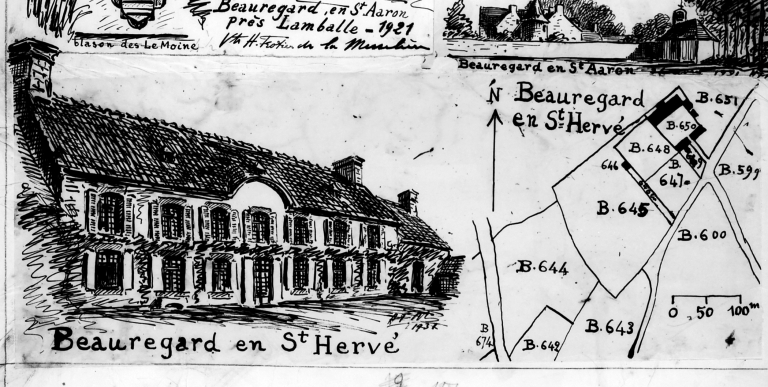 Beauregard en St Aaron
près Lamballe - 1921
Vte H. Frotier de la
blason des Le Moine
Beauregard en St Aaron
N Beauregard
en St Hervé
B.651
B.650
B.648
B.599
646
B.
647
B.645
B.600
B.644
B.643
B.642
B
674
0 50 100m
Beauregard en St Hervé